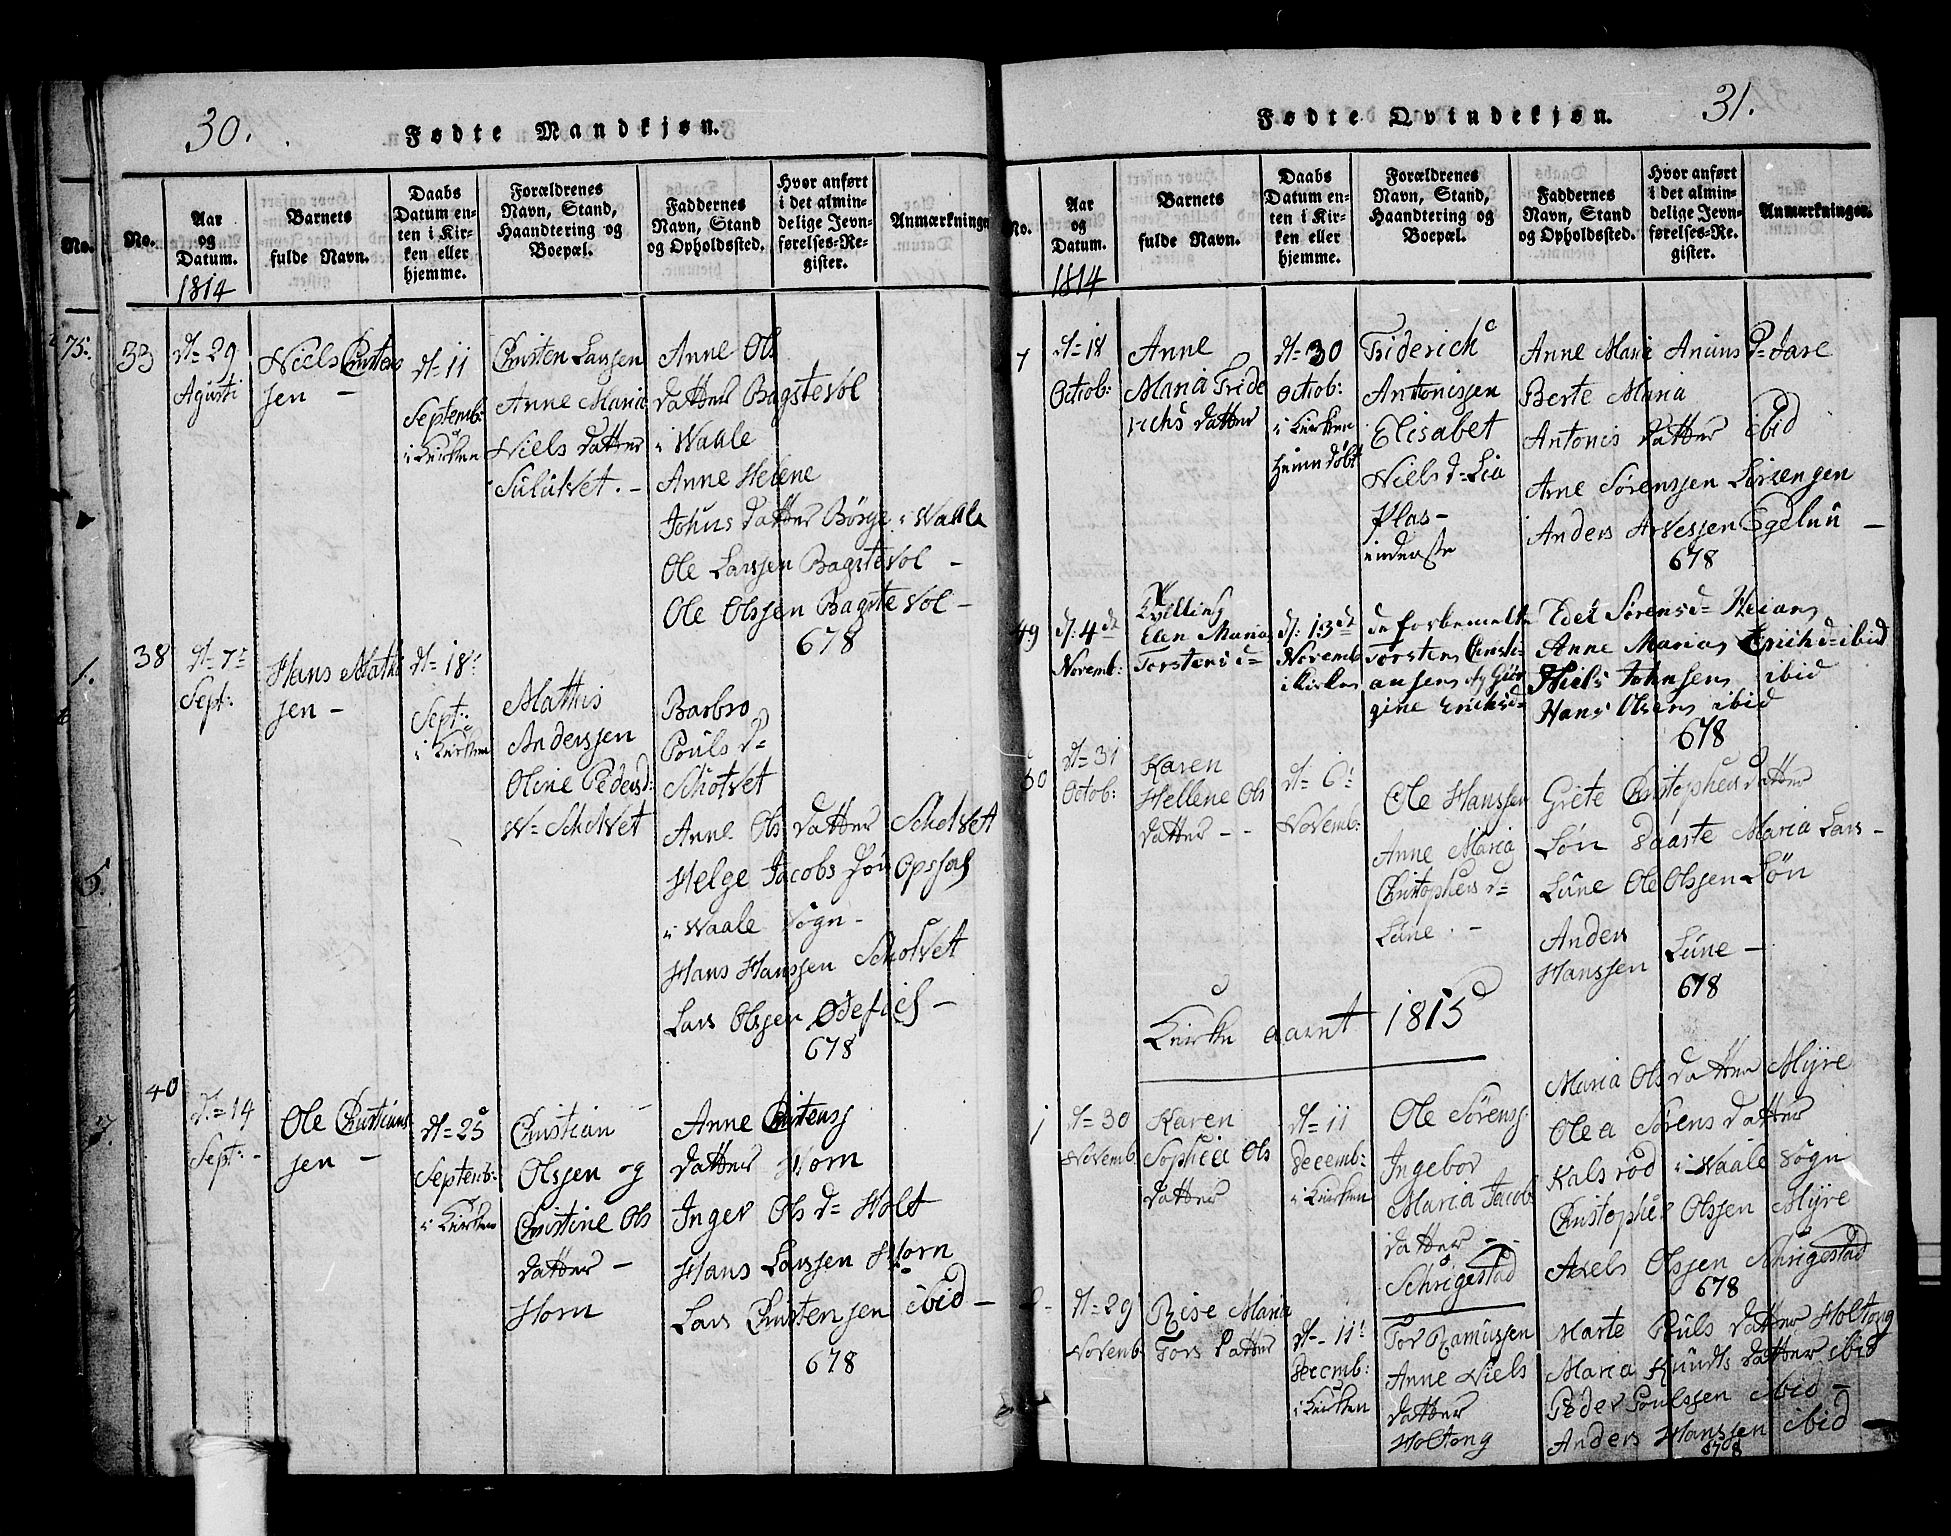 30.
Fødte Mandkjøn.
No.
Aar og Datum.
1814
Barnets fulde Navn.
Daabs Datum enten i Kirken eller hjemme.
Forældrenes Navn, Stand, Haandtering og Boepæl.
Faddernes Navn, Stand og Opholdssted.
Hvor anført i det almindelige Jevnførelses-Register.
Anmærkninger
33
d= 29
Agusti
Niels Christens
sen –
d= 11
Septemb:
i Kirken
Christen Larssen
Anne Maria
Niels datter
Anne Ols
datter Bagstevol
i Waale
Anne Helene
Johns datter Børge i Waale
Ole Larssen Bagstevol –
Ole Olssen Bagstevol –
678
38
d= 7=
Sept:
Hans Mathis
sen –
d= 18
Sept:
i Kirken
Mathis
Anderssen
Oline Pedersd:
W= Scholvet
Barbro
Pouls d=
Scholvet
Anne Ols datter Scholvet
Helge Jacobs søn Opsjal
i Waale Sogn –
Hans Hanssen Scholvet
Lars Olssen Ødefiel –
678
40
d= 14
Sept: –
Ole Christians
sen –
d= 25
Septemb:
i Kirken
Christian
Olssen og
Christine Ols
datter –
Horn
Anne Christens
datter Horn
Inger Ols d= Holt
Hans Larssen Horn
Lars Christensen ibid –
678
31.
Fødte Qvindekjøn.
No.
Aar og Datum.
1814
Barnets fulde Navn.
Daabs Datum enten i Kirken eller hjemme.
Forældrenes Navn, Stand, Haandtering og Boepæl.
Faddernes Navn, Stand og Opholdssted.
Hvor anført i det almindelige Jevnførelses-Register.
Anmærkninger.
7
d= 18
Octob:
Anne
Maria Fride
richs datter
d= 30
Octob:
i Kirken
hjemdøbt
Friderich
Antonissen
Elisabet
Niels d= Lia
Plas –
inderste
Anne Maria
Berte Maria
Antonis datter ibid
Arne Sørenssen
Anders Arvessen Egelund –
678
49
d: 4de
Novemb:
Tvilling
Elen Maria
Torstens d=
d: 13de
Novemb
i Kirken
de forbemelte
Torsten Christi
ansen og Geor
gine Ericksd=
Edel Sørens d=
Anne Maria Erichd= ibid
Niels Johnsen ibid
Hans Olsen ibid
678
50
d= 31
Octob:
Karen
Hellene Ols
datter –
d= 6
Novemb:
Ole Hanssen
Anne Maria
Christophers d=
Lüne –
Grete Christophers datter
Løn Daarte Maria Lars –
Lüne Ole Olssen Løn
Anders
Hanssen Lüne –
678
Kirke aaret 1815
1
d= 30
Novemb.
Karen
Sophia Ols
datter
d= 11
Decemb:
i Kirken
Ole Sørens
Ingebor
Maria Jacob
datter –
Schrigestad
Maria Ols datter Myre
Olea Sørens datter
Kalsrød i Waale Sogn
Christopher Olssen Myre
Axels Olssen Schrigestad
678
2
d= 29
Novemb:
Rise Maria
Tors datter
d= 11
Decemb:
i Kirken
Tor Ramussen
Anne Niels
datter
Holtong
Marte Puls datter Holtong
Maria Knuds datter ibid
Peder Poulssen ibid –
Anders Hanssen ibid
678